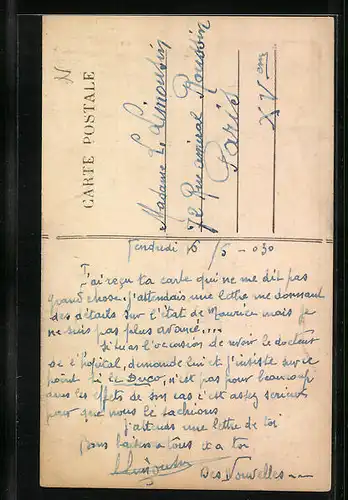 CARTE POSTALE
Madame L. Limousin
72 Rue amiral Roussin
Paris
XV em
Vendredi 16/5-030
J'ai reçu ta carte qui ne me dit pas
grand chose. j'attendais une lettre me donnant
des détails sur l'état de Maurice mais je
ne suis pas plus avancé....
Si tu as l'occasion de revoir le docteur
de l'hôpital, demande lui et j'insiste sur ce
point si le n'est pas pour beaucoup
dans les effets de son cas c'est assez sérieux
pour que nous le sachions
J'attends une lettre de toi
Bons baisers à tous et a toi
Limousin
Des Nouvelles